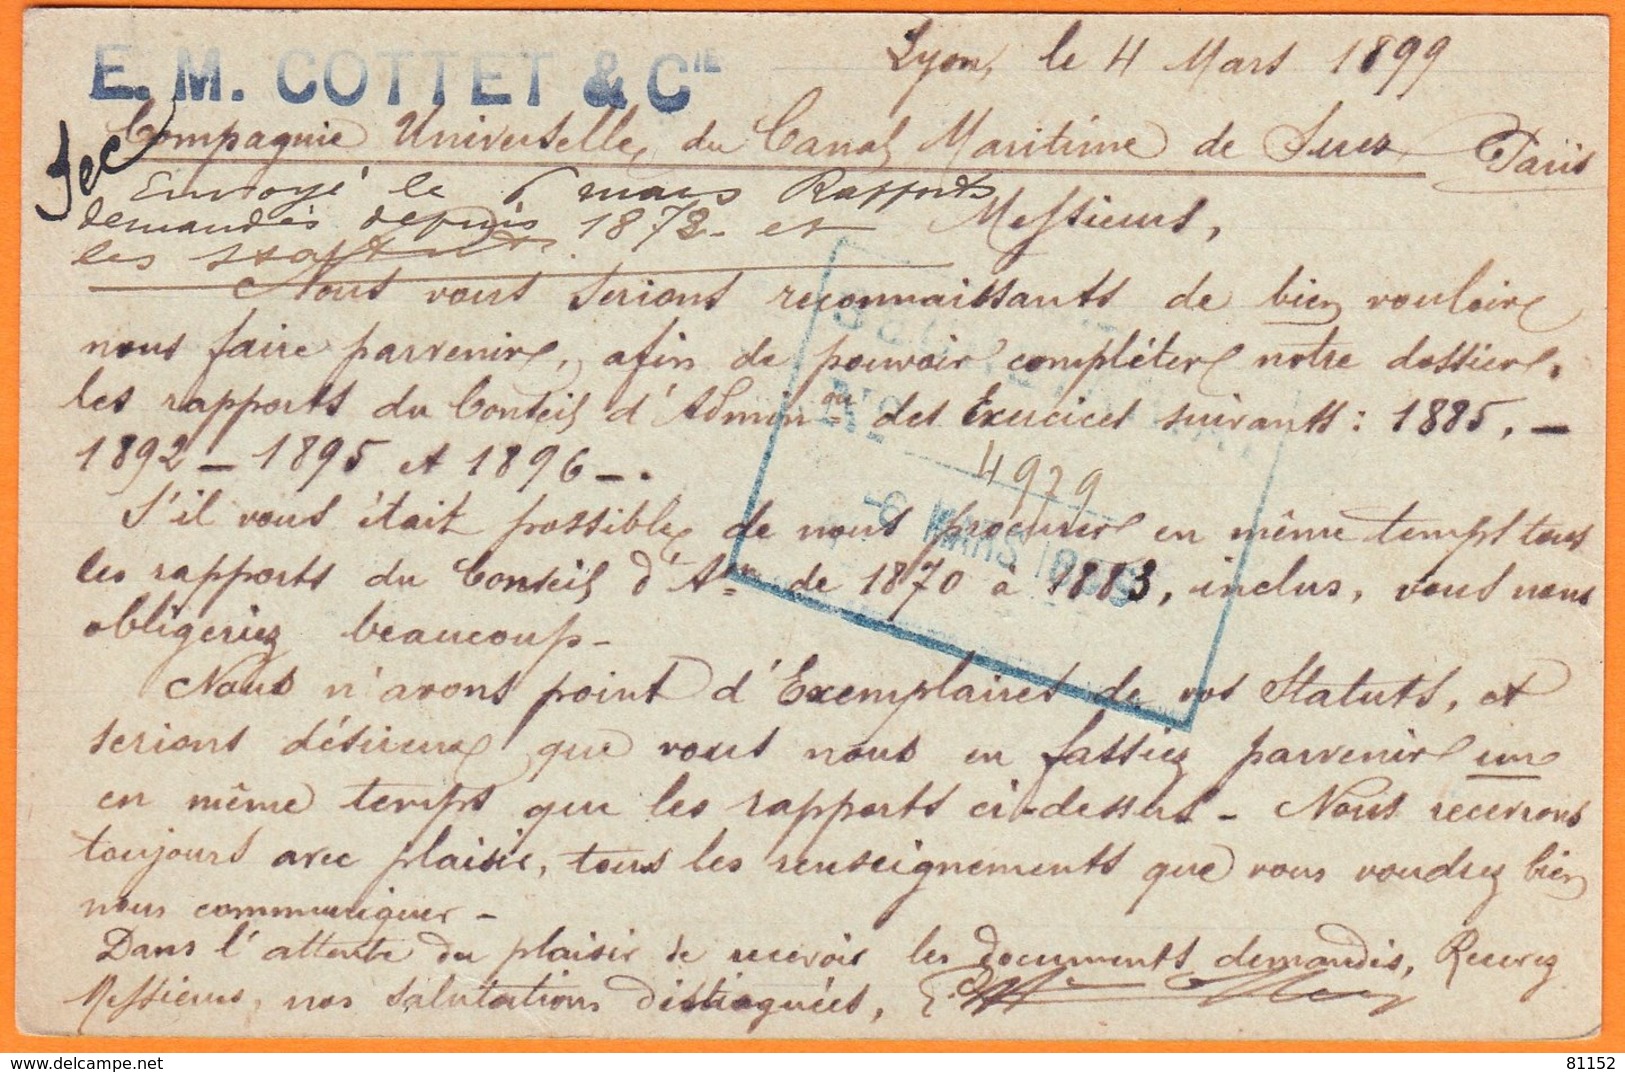 E. M. COTTET & CIE
Lyon, le 4 Mars 1899
Compagnie Universelle du Canal Maritime de Suez Paris
Sec
Envoyé le 6 mars Rapports
demandés depuis 1872 - et
les statuts.
Messieurs,
Nous vous serions reconnaissants de bien vouloir
nous faire parvenir, afin de pouvoir compléter notre dossier,
les rapports du Conseil d'Admin.on des Exercices suivants : 1885, —
1892 — 1895 et 1896 —.
No 4979
-6 MARS 1899
S'il vous était possible de nous procurer en même temps tous
les rapports du Conseil d'Aon de 1870 à 1883, inclus, vous nous
obligeriez beaucoup -
Nous n'avons point d'Exemplaires de vos Statuts, et
serions désireux que vous nous en fassiez parvenir un
en même temps que les rapports ci-dessus - Nous recevrons
toujours avec plaisir, tous les renseignements que vous voudrez bien
nous communiquer -
Dans l'attente du plaisir de recevoir les documents demandés, Recevez
Messieurs, nos salutations distinguées,
delcampe.net
81152